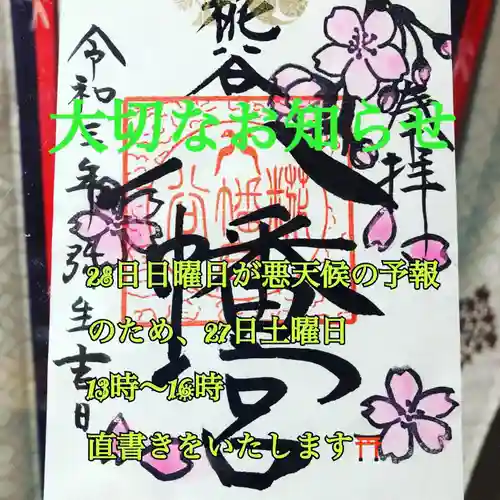 大切なお知らせ
28日日曜日が悪天候の予報
のため、27日土曜日
13時〜16時
直書きをいたします⛩
奉拝
熊谷
八幡宮
令和三年弥生吉日